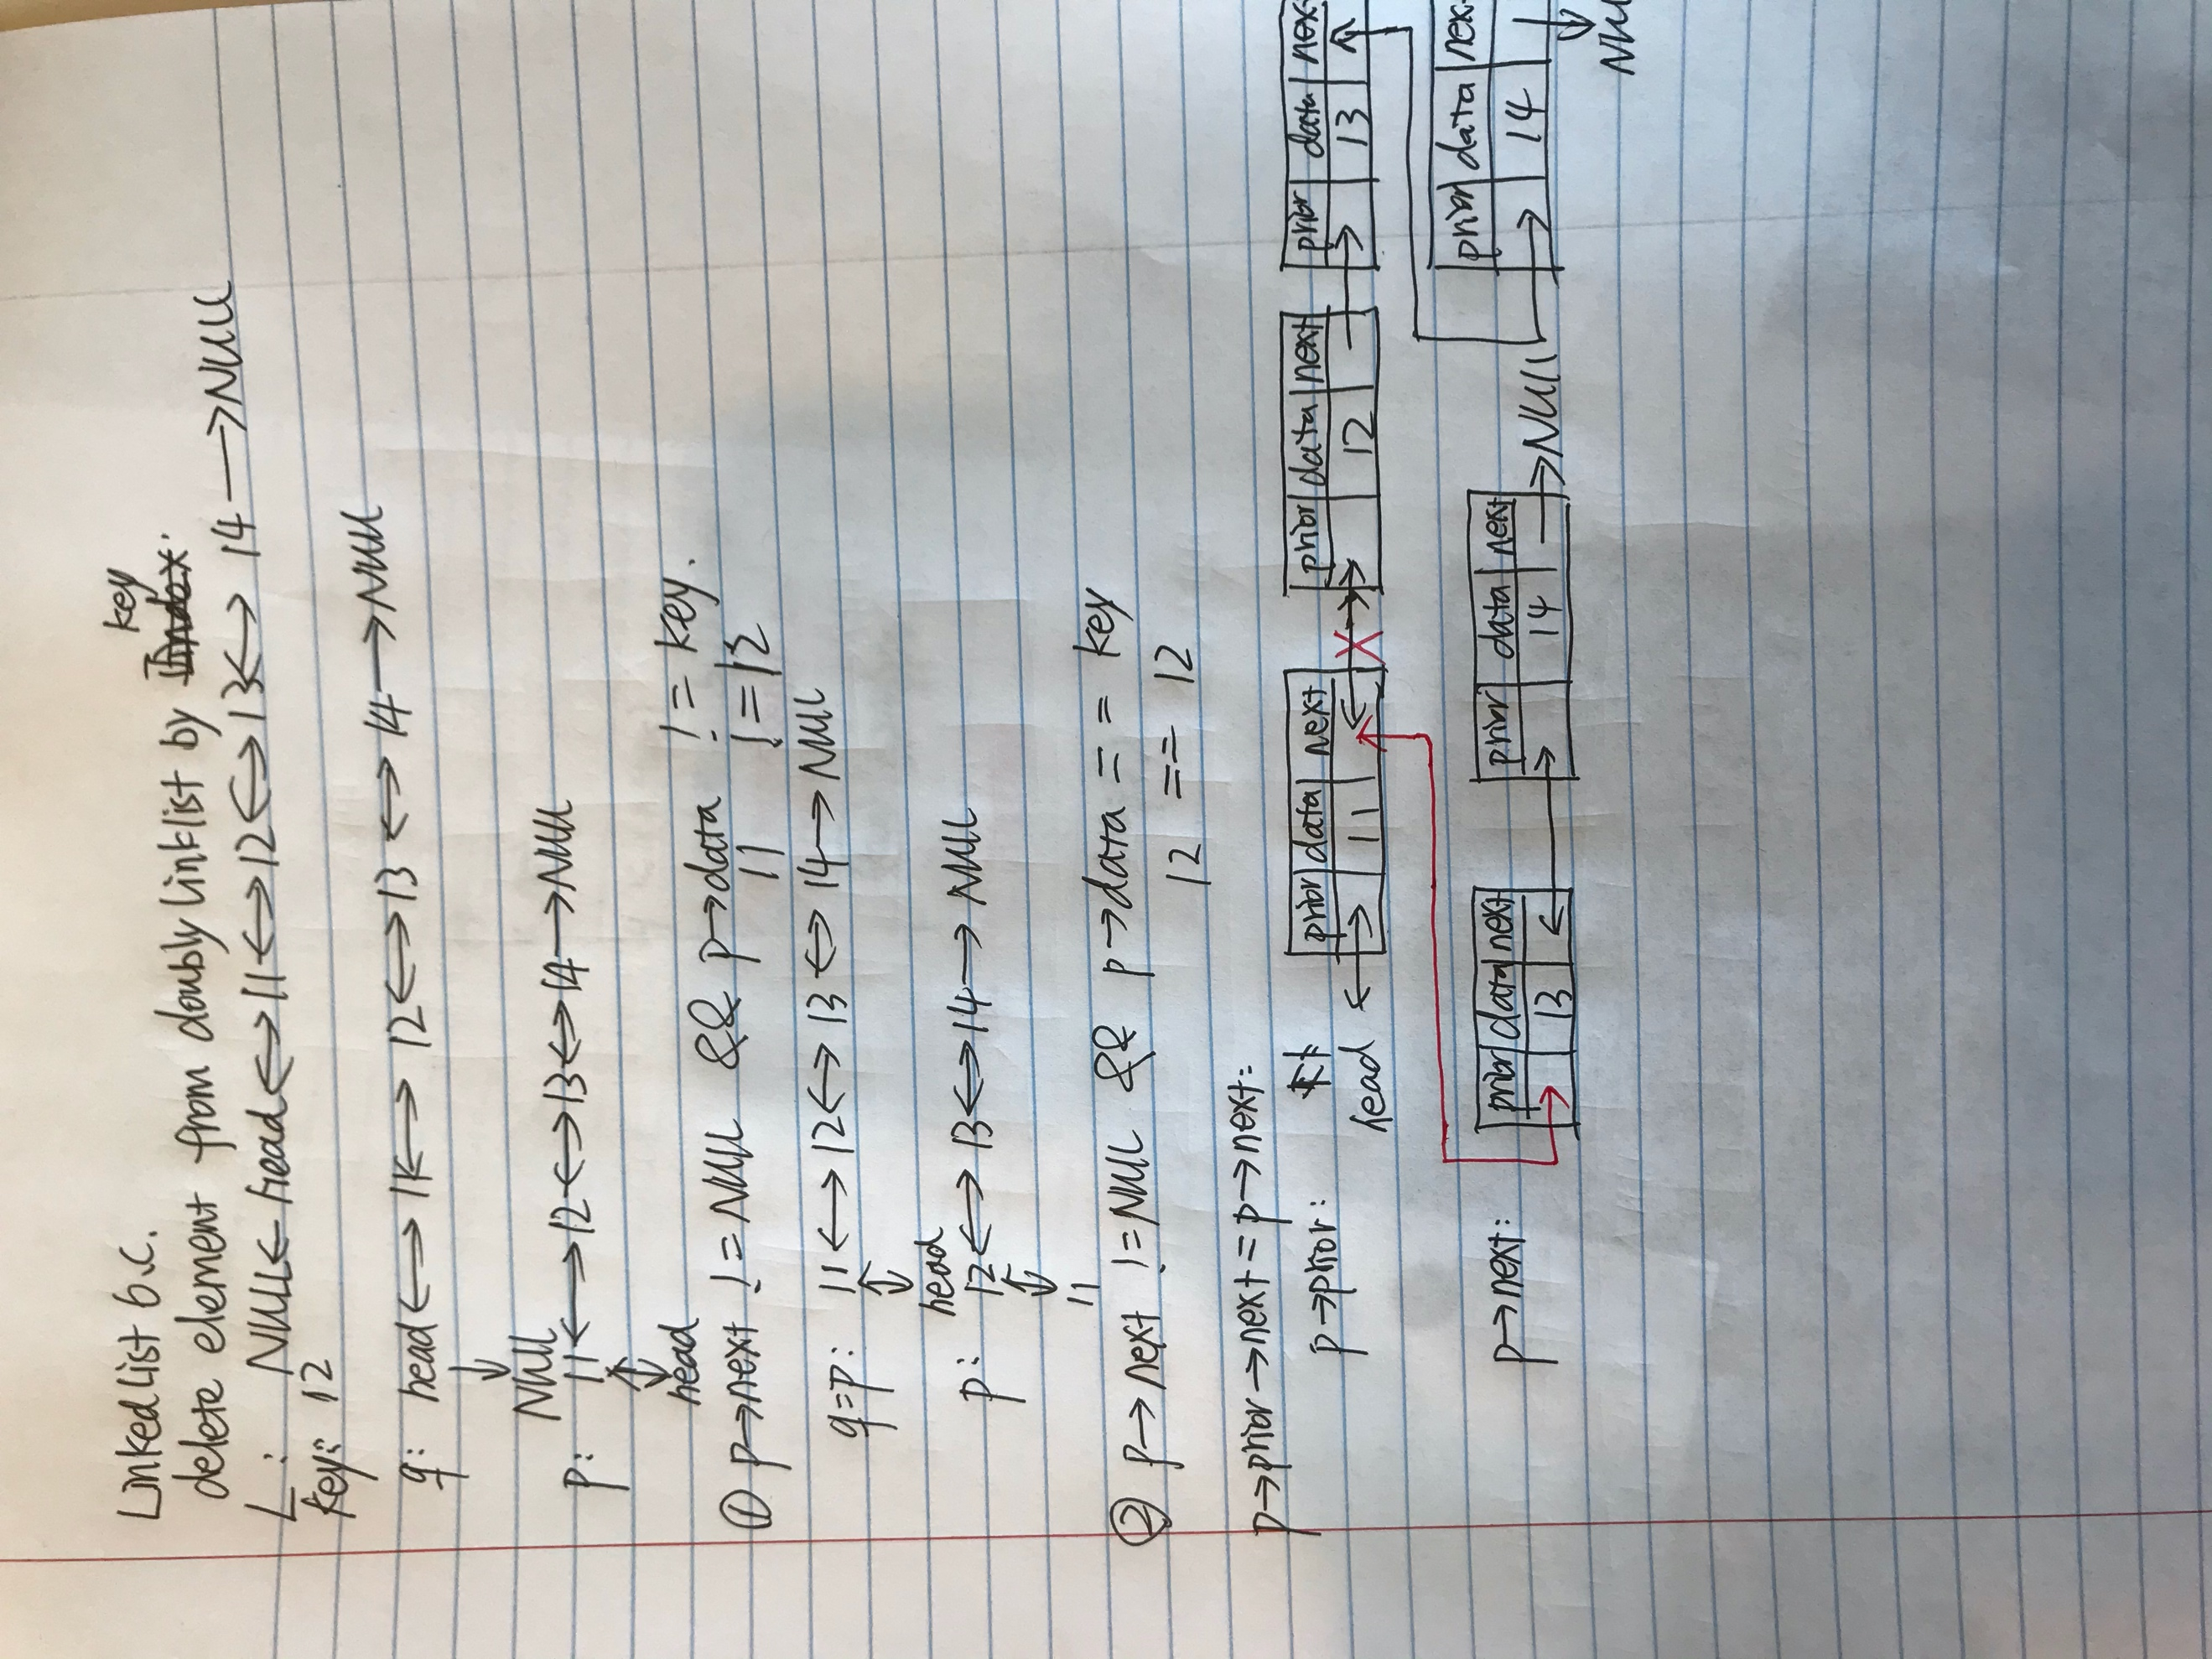 Linked list b.c.
delete element from doubly linklist by key
L: NULL ← head ↔ 11 ↔ 12 ↔ 13 ↔ 14 → NULL
key: 12
q: head ↔ 11 ↔ 12 ↔ 13 ↔ 14 → NULL
↓
NULL
p: 11 ↔ 12 ↔ 13 ↔ 14 → NULL
↑↓
head
① p→next != NULL && p→data != key.
11 != 12
q=p: 11 ↔ 12 ↔ 13 ↔ 14 → NULL
↑↓
head
p: 12 ↔ 13 ↔ 14 → NULL
↑↓
11
② p→next != NULL && p→data == key
12 == 12
p→prior→next = p→next:
p→prior: prior data next prior data next prior data next
head 11 X 12 13
p→next: prior data next prior data next → NULL prior data next
13 14 14
NULL